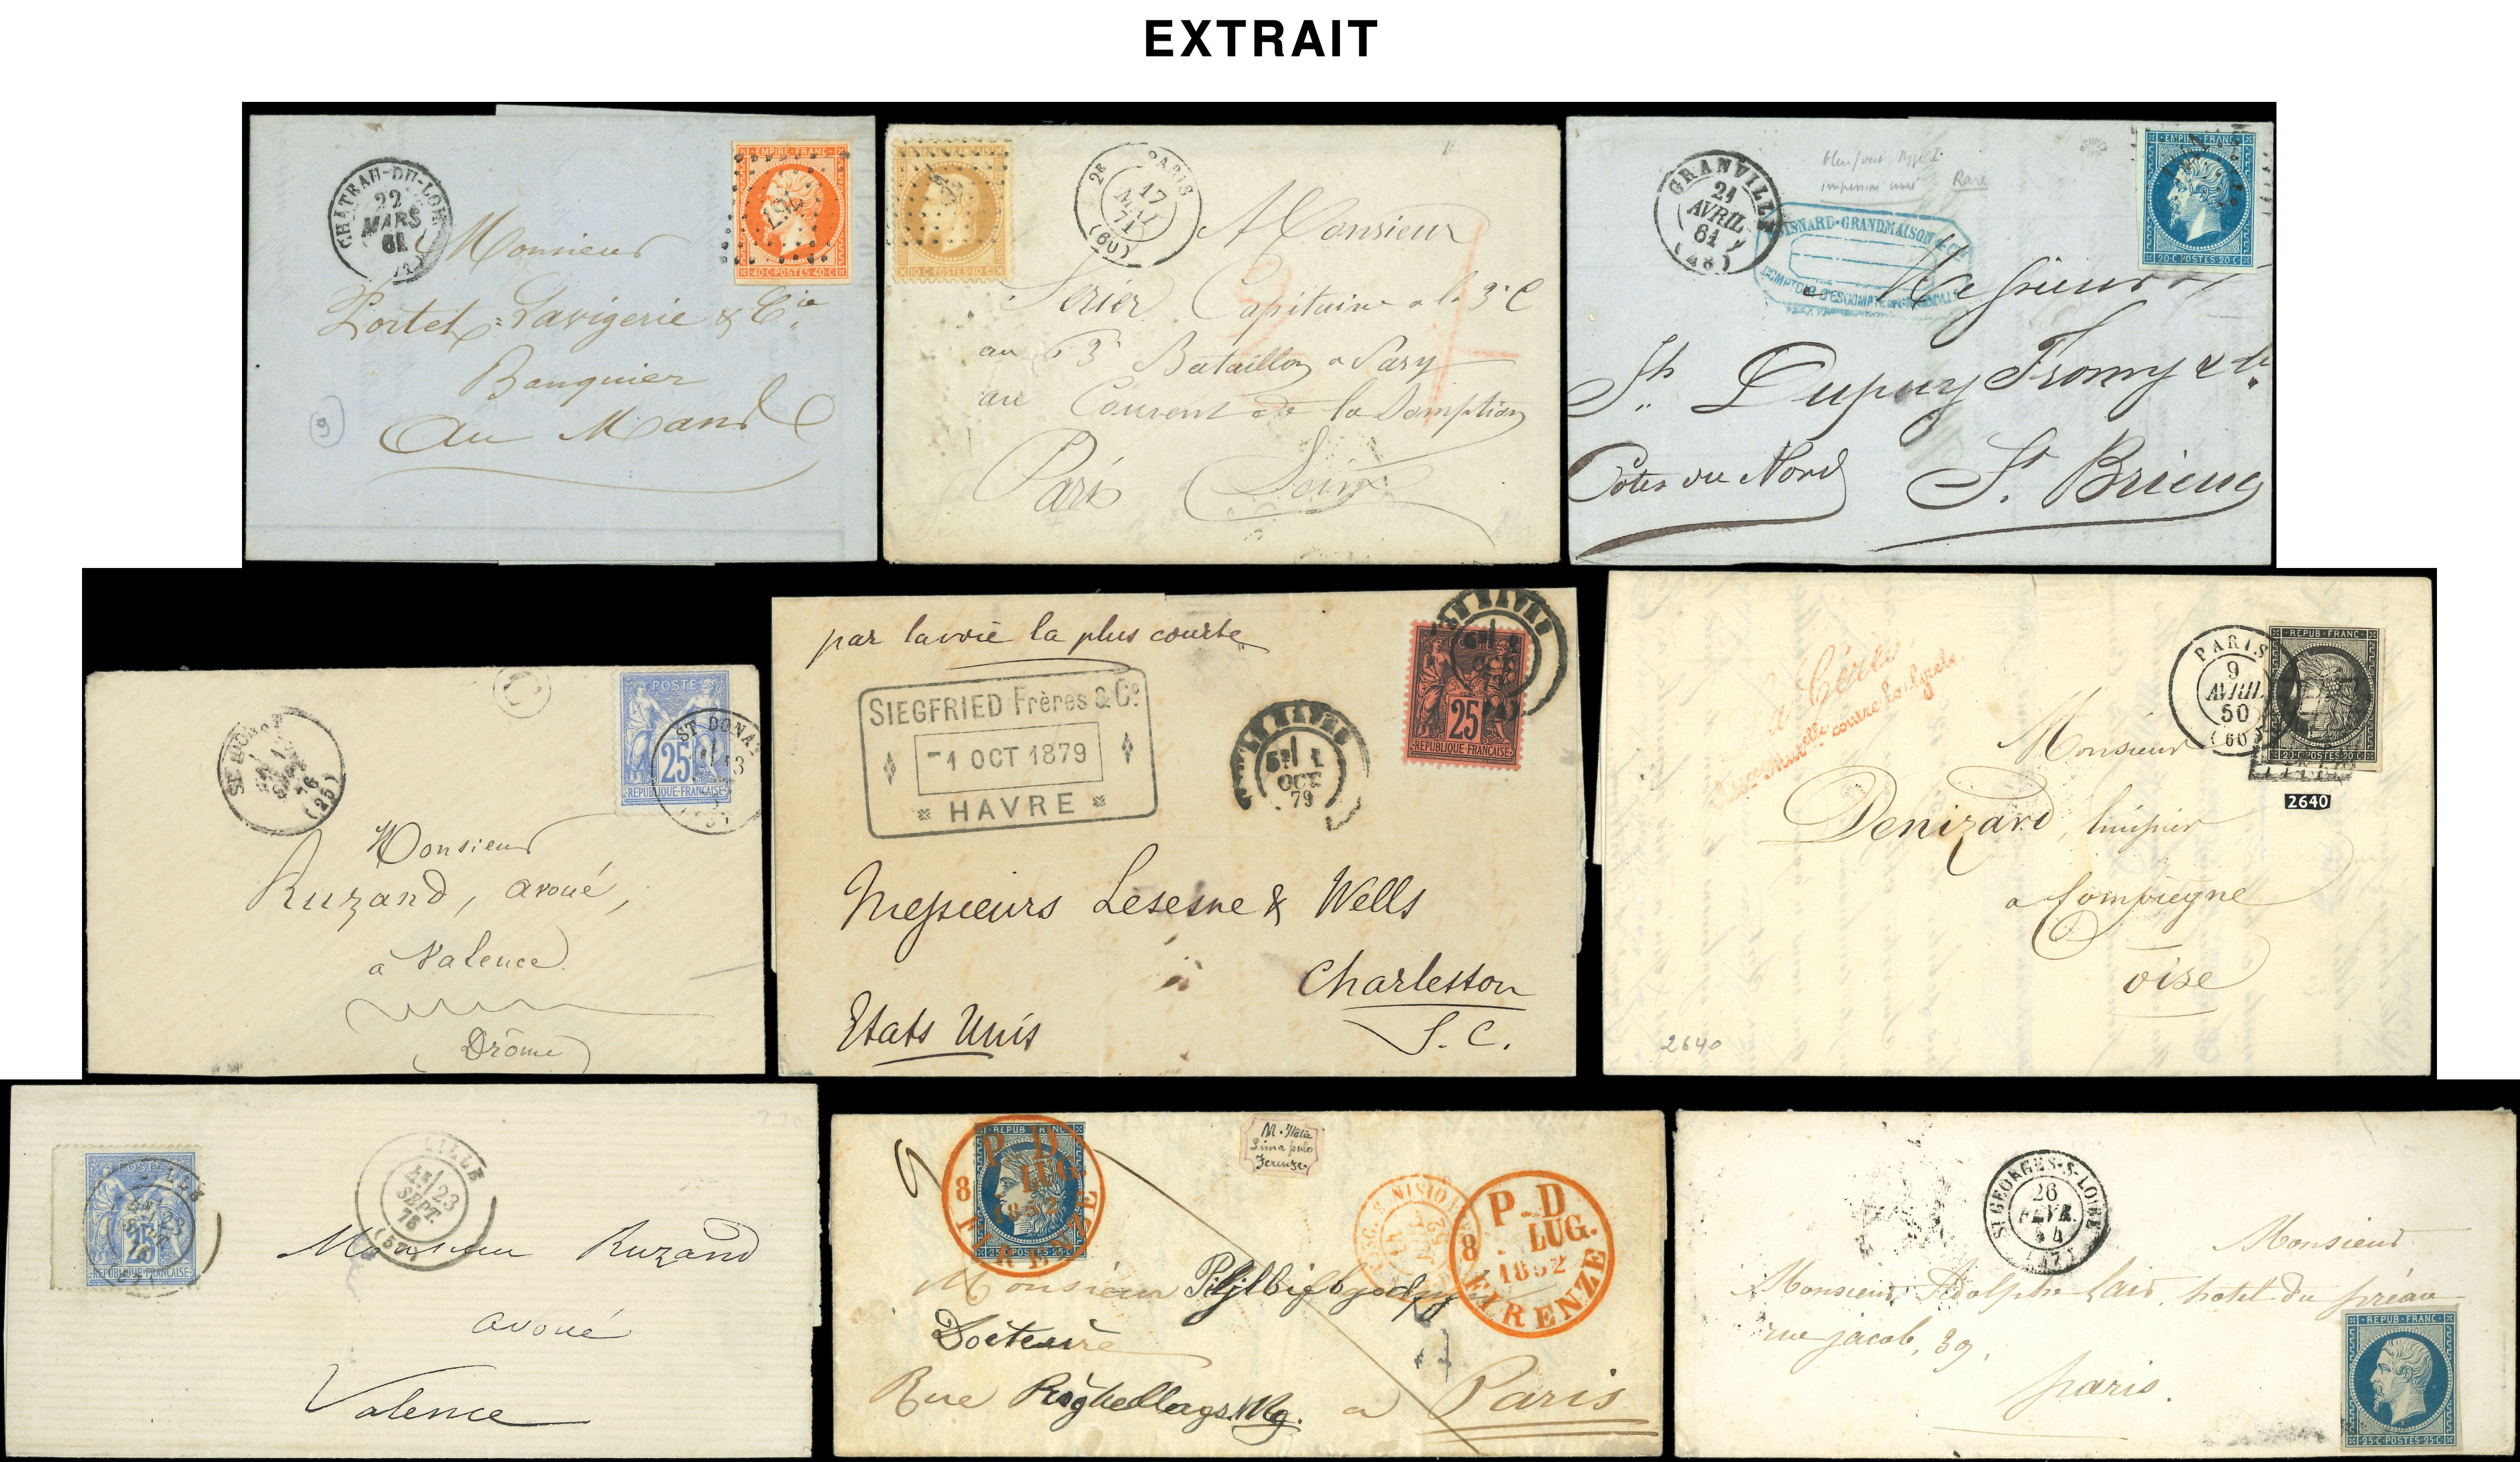 EXTRAIT
CHATEAU-DU-LOIR
22
MARS
61
EMPIRE FRANC
40 C POSTES 40 C
Monsieur
Portet Lavigerie & Cie
Banquier
Au Mans
9
PARIS
17
MAI
71
(60)
10 C POSTES 10 C
A Monsieur
Serier Capitaine a la 3e C
au 63e Bataillon a Pasy
au Couvent de la Somption
Paris
GRANVILLE
21
AVRIL
61
(48)
Type I
Rare
EMPIRE FRANC
20 C POSTES 20 C
ISNARD-GRANDMAISON & Cie
COMPTOIR D'ESCOMPTE DE GRANVILLE
Messieurs
Dupuy Fromy
Côtes du Nord
St Brieuc
76
(25)
POSTE
25
REPUBLIQUE FRANÇAISE
ST DONAT
Monsieur
Ruzand, avoué,
à Valence
(Drôme)
par la voie la plus courte
SIEGFRIED Frères & Co.
-1 OCT 1879
HAVRE
LE HAVRE
5E 1
OCT
79
LE HAVRE
OCT
25
REPUBLIQUE FRANÇAISE
Messieurs Lesesne & Wells
Charleston
S. C.
Etats Unis
PARIS
9
AVRIL
50
(60)
REPUB FRANC
20 C POSTES 20 C
2640
Monsieur
Denizard,
a Compiegne
oise
2640
POSTE
25
REPUBLIQUE FRANÇAISE
LILLE
23
SEPT.
76
Monsieur Ruzand
avoué
Valence
REPUB FRANC
25 C POSTES 25 C
P.D
8 LUG.
1852
FIRENZE
P.D
8 LUG.
1852
FIRENZE
Monsieur
Rue
a Paris
ST GEORGES-S-LOIRE
26
FEVR.
54
(47)
Monsieur
Monsieur Adolphe Lair, hotel du préau
rue jacob, 39,
paris.
REPUB FRANC
25 C POSTES 25 C